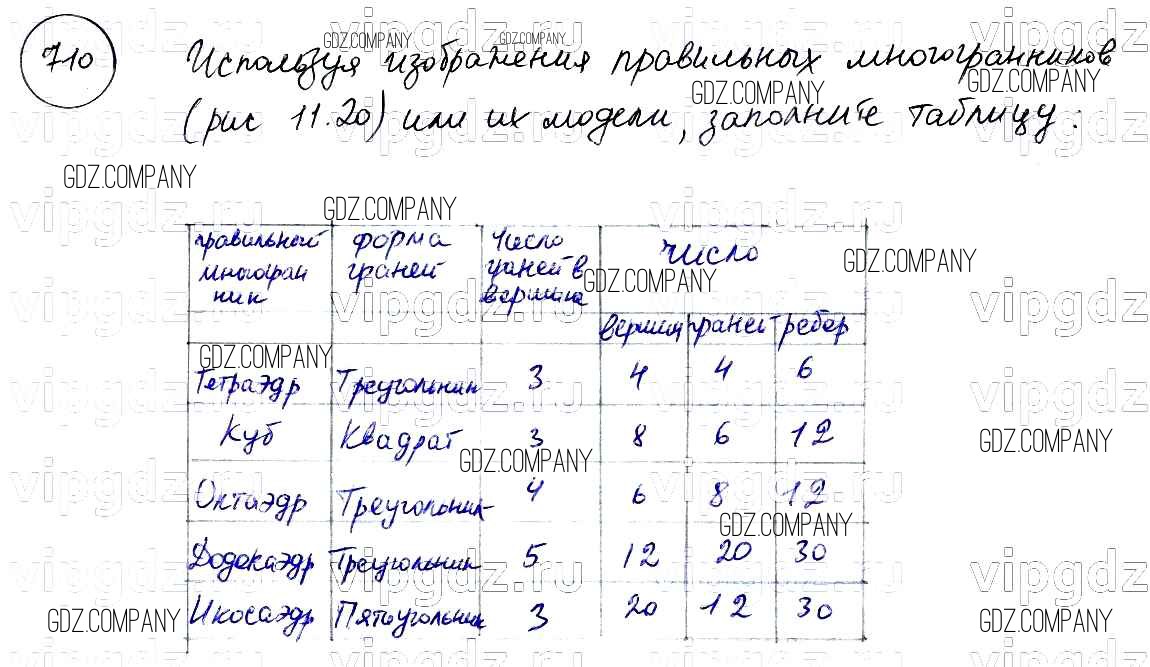 710 Используя изображения правильных многогранников
(рис 11.20) или их модели, заполните таблицу.
правильный многогран ник | форма граней | Число граней в вершине | число
вершин | граней | ребер
Тетраэдр | Треугольник | 3 | 4 | 4 | 6
Куб | Квадрат | 3 | 8 | 6 | 12
Октаэдр | Треугольник | 4 | 6 | 8 | 12
Додекаэдр | Треугольник | 5 | 12 | 20 | 30
Икосаэдр | Пятиугольник | 3 | 20 | 12 | 30
GDZ.COMPANY
vipgdz.ru